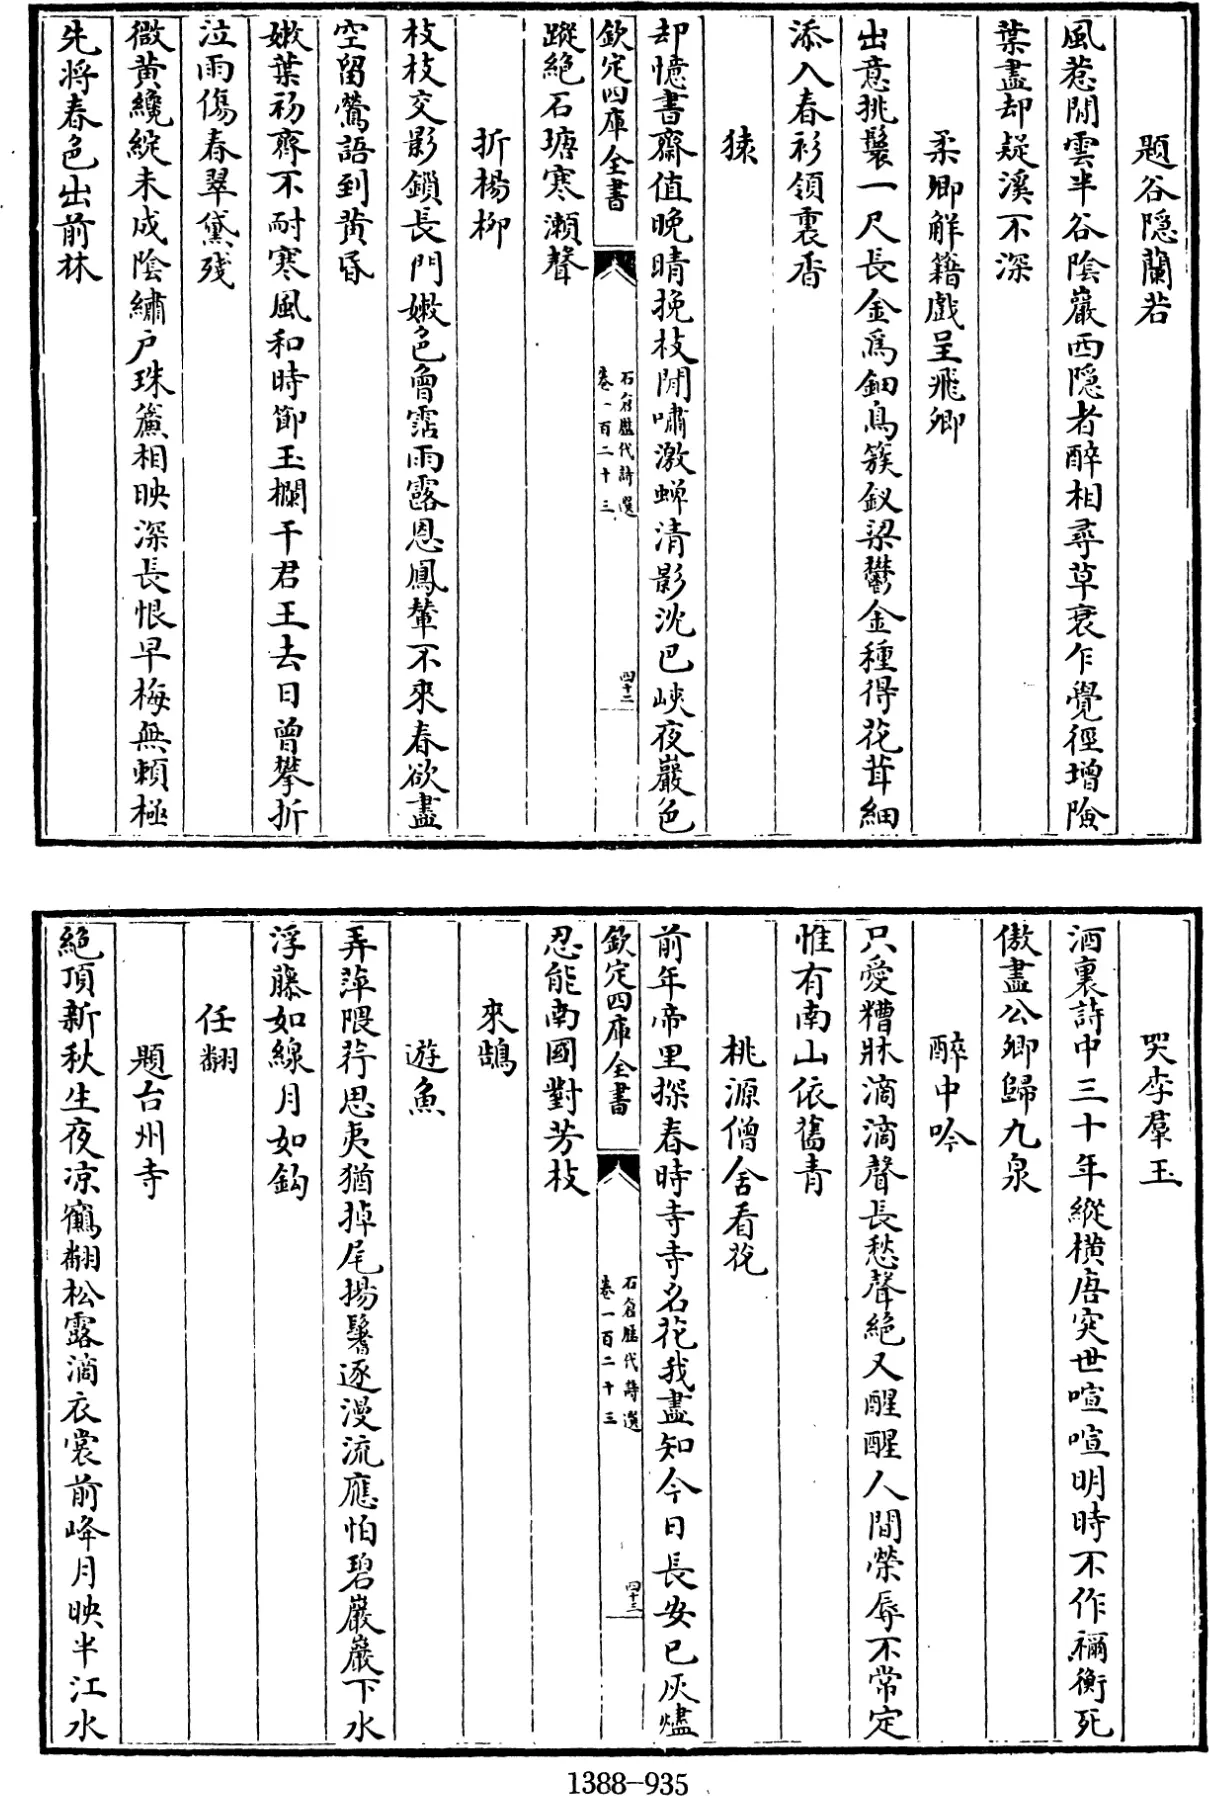 題谷隱蘭若
風惹閒雲半谷陰巖西隱者醉相尋草衰乍覺徑增險
葉盡却疑溪不深
柔卿解籍戲呈飛卿
出意挑鬟一尺長金爲鈿鳥簇釵梁鬱金種得花茸細
添入春衫領裏香
猿
却憶書齋值晚晴挽枝閒嘯激蟬清影沈巴峽夜巖色
欽定四庫全書
石倉歷代詩選
卷一百二十三
四十二
蹤絶石瑭寒瀬聲
折楊柳
枝枝交影鎖長門嫩色曾霑雨露恩鳳輦不來春欲盡
空留鶯語到黄昏
嫩葉初齊不耐寒風和時節玉欄干君王去日曾攀折
泣雨傷春翠黛殘
微黄纔綻未成陰繡户珠簾相映深長恨早梅無賴極
先將春色出前林
哭李羣玉
酒裏詩中三十年縱橫唐突世喧喧明時不作禰衡死
傲盡公卿歸九泉
醉中吟
只愛糟牀滴滴聲長愁聲絶又醒醒人間榮辱不常定
惟有南山依舊青
桃源僧舍看花
前年帝里探春時寺寺名花我盡知今日長安已灰燼
欽定四庫全書
石倉歷代詩選
卷一百二十三
四十三
忍能南國對芳枝
來鵠
遊魚
弄萍隈荇思夷猶掉尾揚鬐逐漫流應怕碧巖巖下水
浮藤如線月如鈎
任翻
題台州寺
絶頂新秋生夜凉鶴翻松露滴衣裳前峰月映半江水
1388-935